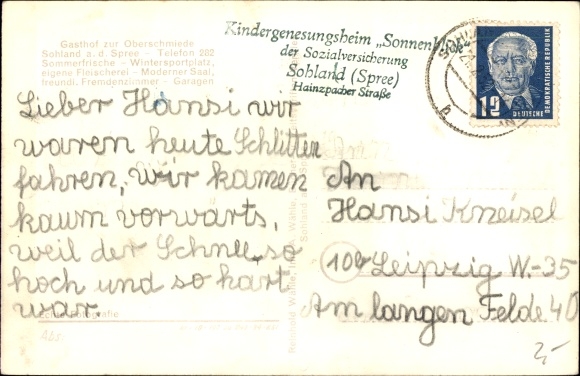 Gasthof zur Oberschmiede
Sohland a. d. Spree - Telefon 282
Sommerfrische - Wintersportplatz,
eigene Fleischerei - Moderner Saal,
freundl. Fremdenzimmer - Garagen
Kindergenesungsheim „Sonnenblick“
der Sozialversicherung
Sohland (Spree)
Hainzpacher Straße
12
DEUTSCHE
DEMOKRATISCHE REPUBLIK
Lieber Hansi wir
waren heute Schlitten
fahren, wir kamen
kaum vorwarts,
weil der Schnee so
hoch und so hart
war.
An
Hansi Kneisel
10b Leipzig W.-35
Am langen Felde 40
Echte Fotografie
2,-